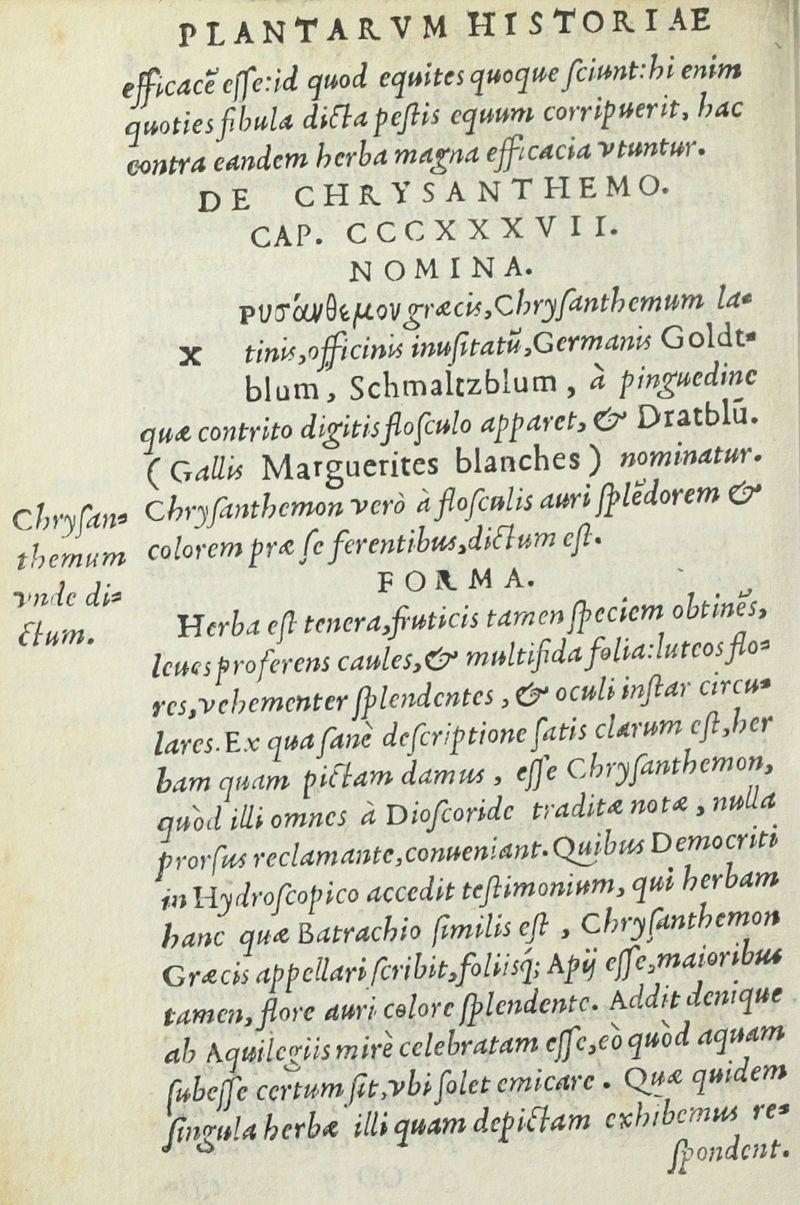 PLANTARVM HISTORIAE
efficacẽ eſſe:id quod equites quoque ſciunt:hi enim
quoties fibula dicta peſtis equum corripuerit, hac
contra eandem herba magna efficacia vtuntur.
DE CHRYSANTHEMO.
CAP. CCCXXXVII.
NOMINA.
ρυσάνθεμον græcis,Chryſanthemum la-
X tinis,officinis inuſitatũ,Germanis Goldt-
blum, Schmaltzblum, à pinguedine
quæ contrito digitis floſculo apparet, & Dratblũ.
(Gallis Marguerites blanches) nominatur.
Chryſanthemon verò à floſculis auri ſplẽdorem &
colorem præ ſe ferentibus,dictum eſt.
Chryſan-
themum
vnde di-
ctum.
FORMA.
Herba eſt tenera,fruticis tamen ſpeciem obtinẽs,
leues proferens caules,& multifida folia:luteos flo-
res,vehementer ſplendentes, & oculi inſtar circu-
lares. Ex qua ſanè deſcriptione ſatis clarum eſt,her
bam quam pictam damus, eſſe Chryſanthemon,
quòd illi omnes à Dioſcoride traditæ notæ, nulla
prorſus reclamante,conueniant. Quibus Democriti
in Hydroſcopico accedit teſtimonium, qui herbam
hanc quæ Batrachio ſimilis eſt, Chryſanthemon
Græcis appellari ſcribit,foliisq́; Apij eſſe,maioribus
tamen, flore auri colore ſplendente. Addit denique
ab Aquilegiis mirè celebratam eſſe,eò quòd aquam
ſubeſſe certum ſit,vbi ſolet emicare. Quæ quidem
ſingula herbæ illi quam depictam exhibemus re-
ſpondent.